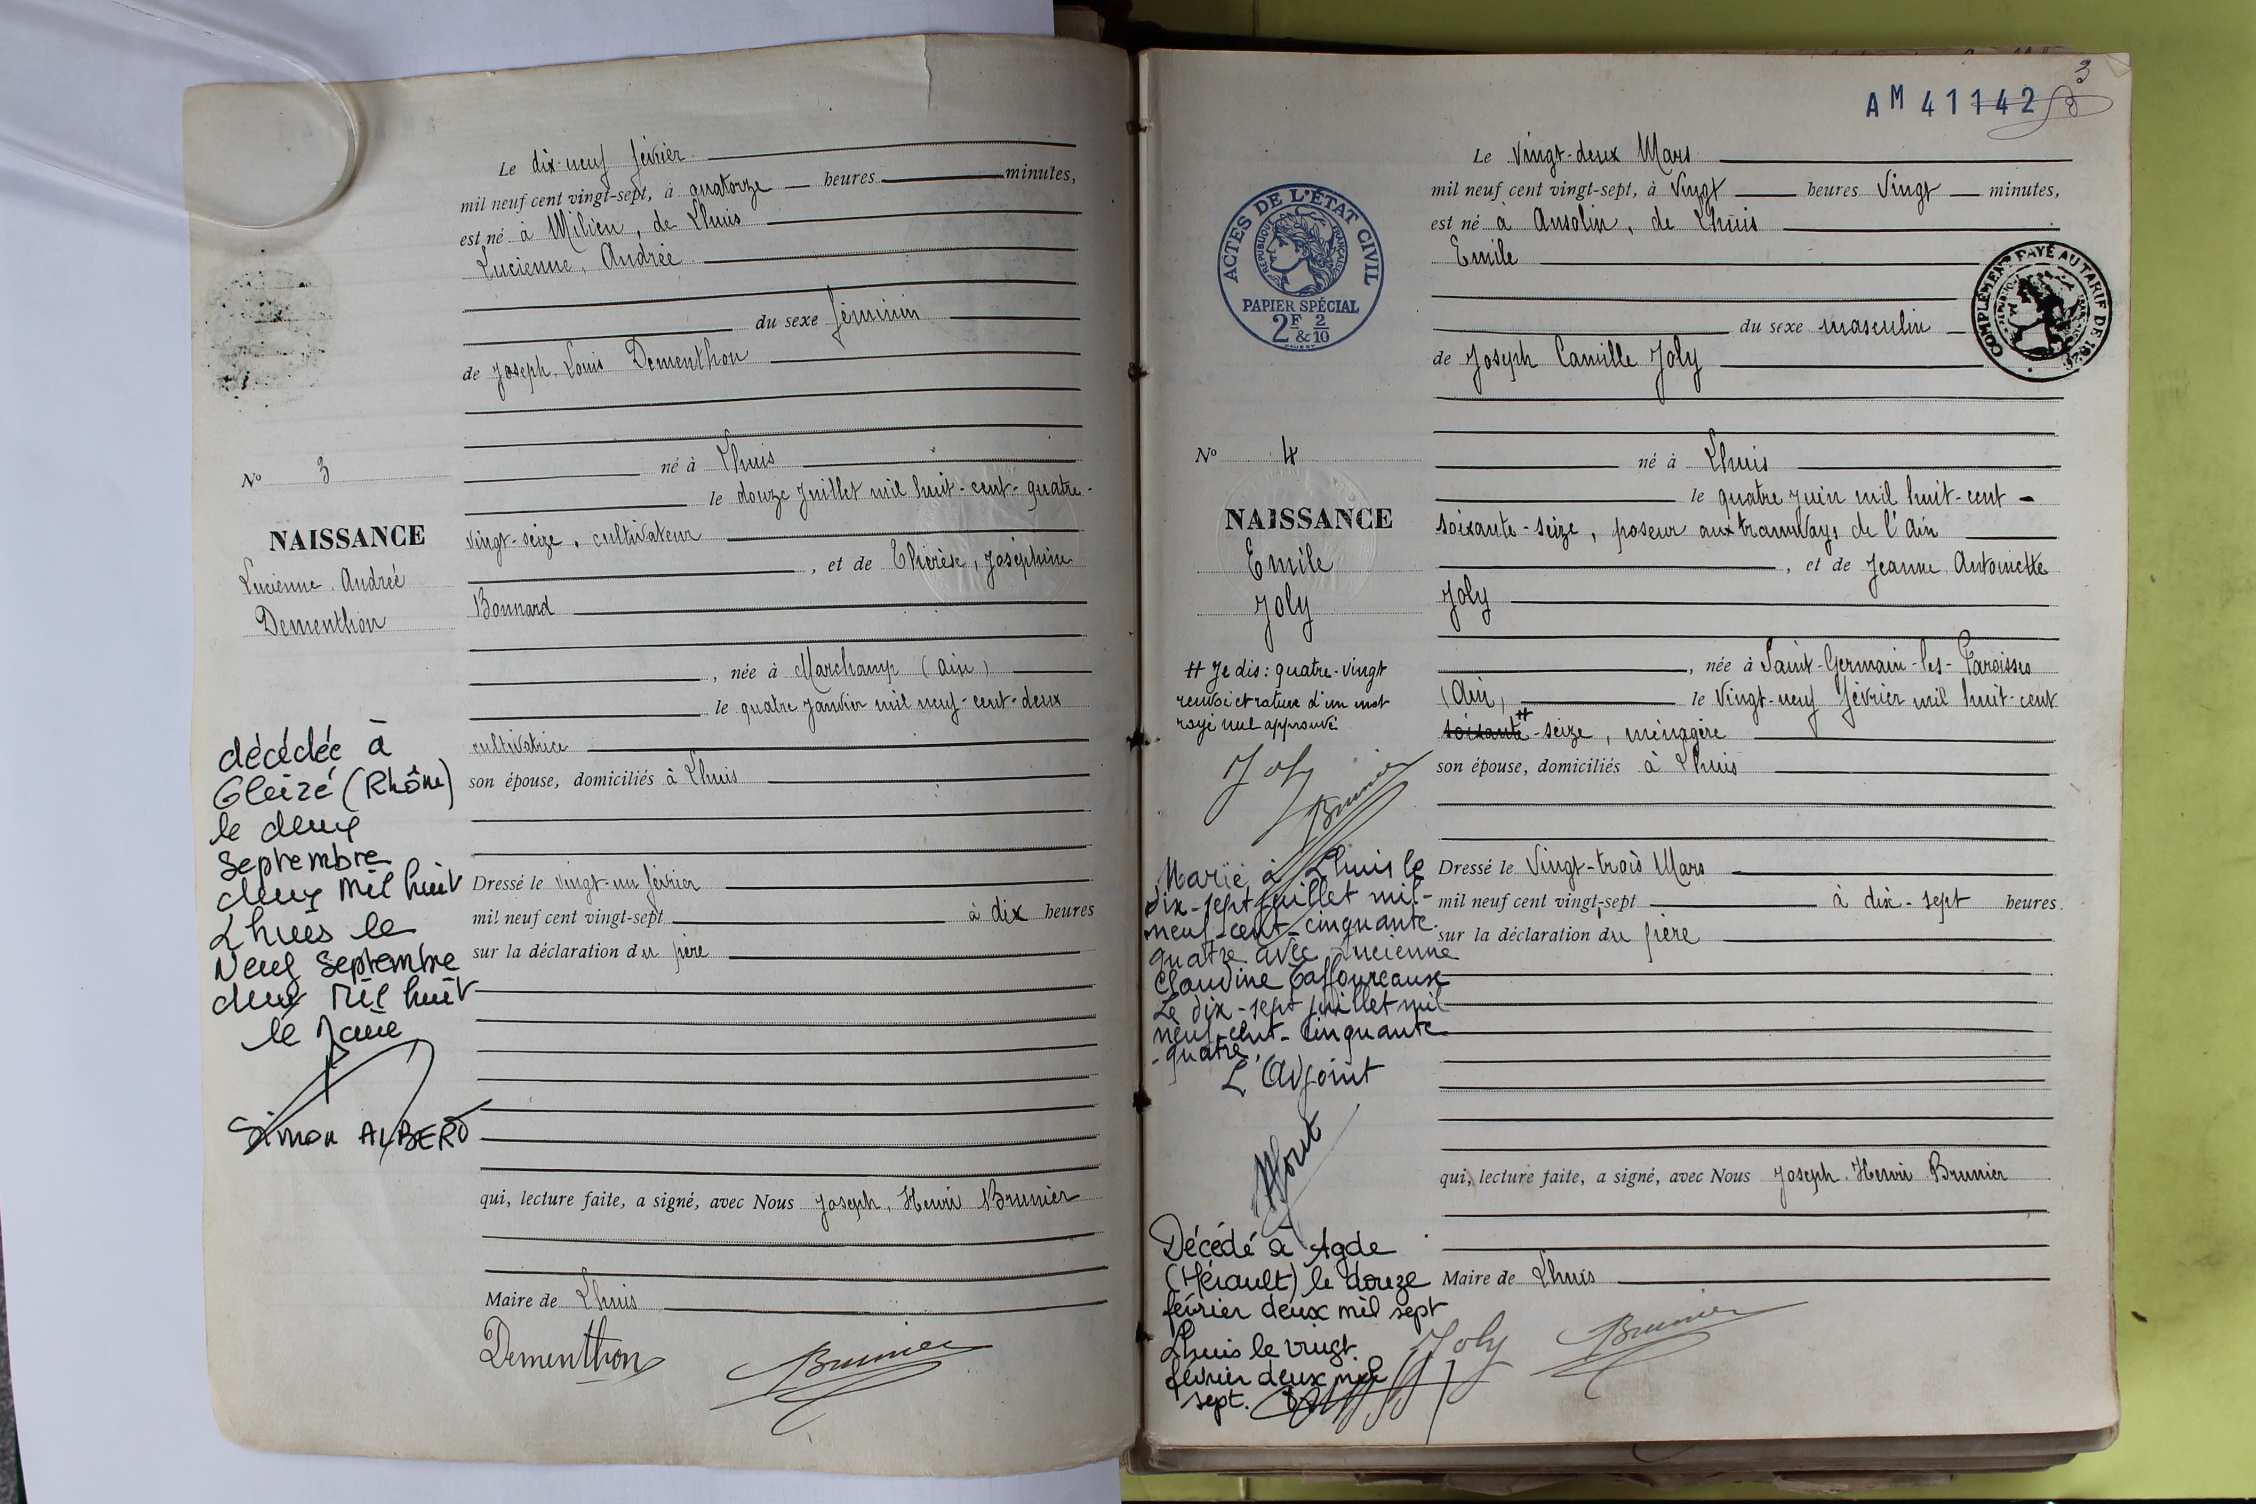 Le dix-neuf février
mil neuf cent vingt-sept, à quatorze heures minutes,
est né à Milieu, de Lhuis
Lucienne, Andrée
du sexe féminin
de Joseph, Louis Dementhon
né à Lhuis
le douze Juillet mil huit-cent-quatre-
vingt-seize, cultivateur
, et de Thérèse, Joséphine
Bonnard
, née à Marchamp (Ain)
le quatre Janvier mil neuf-cent-deux
cultivatrice
son épouse, domiciliés à Lhuis
Dressé le vingt-un février
mil neuf cent vingt-sept à dix heures
sur la déclaration du père
qui, lecture faite, a signé, avec Nous Joseph, Henri Brunier
Maire de Lhuis
Dementhon Brunier
No 3
NAISSANCE
Lucienne, Andrée
Dementhon
décédée à
Gleizé (Rhône)
le deux
Septembre
deux mil huit
Lhuis le
Neuf Septembre
deux mil huit
le Maire
Simon ALBERO
3
AM 41142
Le Vingt-deux Mars
mil neuf cent vingt-sept, à Vingt heures Vingt minutes,
est né à Ansolin, de Lhuis
Emile
du sexe masculin
de Joseph Camille Joly
né à Lhuis
le quatre Juin mil huit-cent-
soixante-seize, poseur aux tramways de l'Ain
, et de Jeanne Antoinette
Joly
, née à Saint-Germain-les-Paroisses
(Ain) le Vingt-neuf février mil huit-cent
soixante # -seize, ménagère
son épouse, domiciliés à Lhuis
Dressé le Vingt-trois Mars
mil neuf cent vingt-sept à dix-sept heures.
sur la déclaration du père
qui, lecture faite, a signé, avec Nous Joseph, Henri Brunier
Maire de Lhuis
Joly Brunier
ACTES DE L'ÉTAT CIVIL
RÉPUBLIQUE FRANÇAISE
PAPIER SPÉCIAL
2F & 2/10
COMPLÉMENT PAYÉ AU TARIF DE 1926
No 4
NAISSANCE
Emile
Joly
# Je dis: quatre-vingt
renvoi et rature d'un mot
rayé nul approuvé
Joly
Brunier
Marié à Lhuis le
dix-sept juillet mil-
neuf-cent-cinquante-
quatre avec Lucienne
Claudine Taffoureaux
Le dix-sept juillet mil
neuf-cent-cinquante
-quatre.
L'Adjoint
Décédé à Agde
(Hérault) le douze
février deux mil sept
Lhuis le vingt
février deux mil
sept.